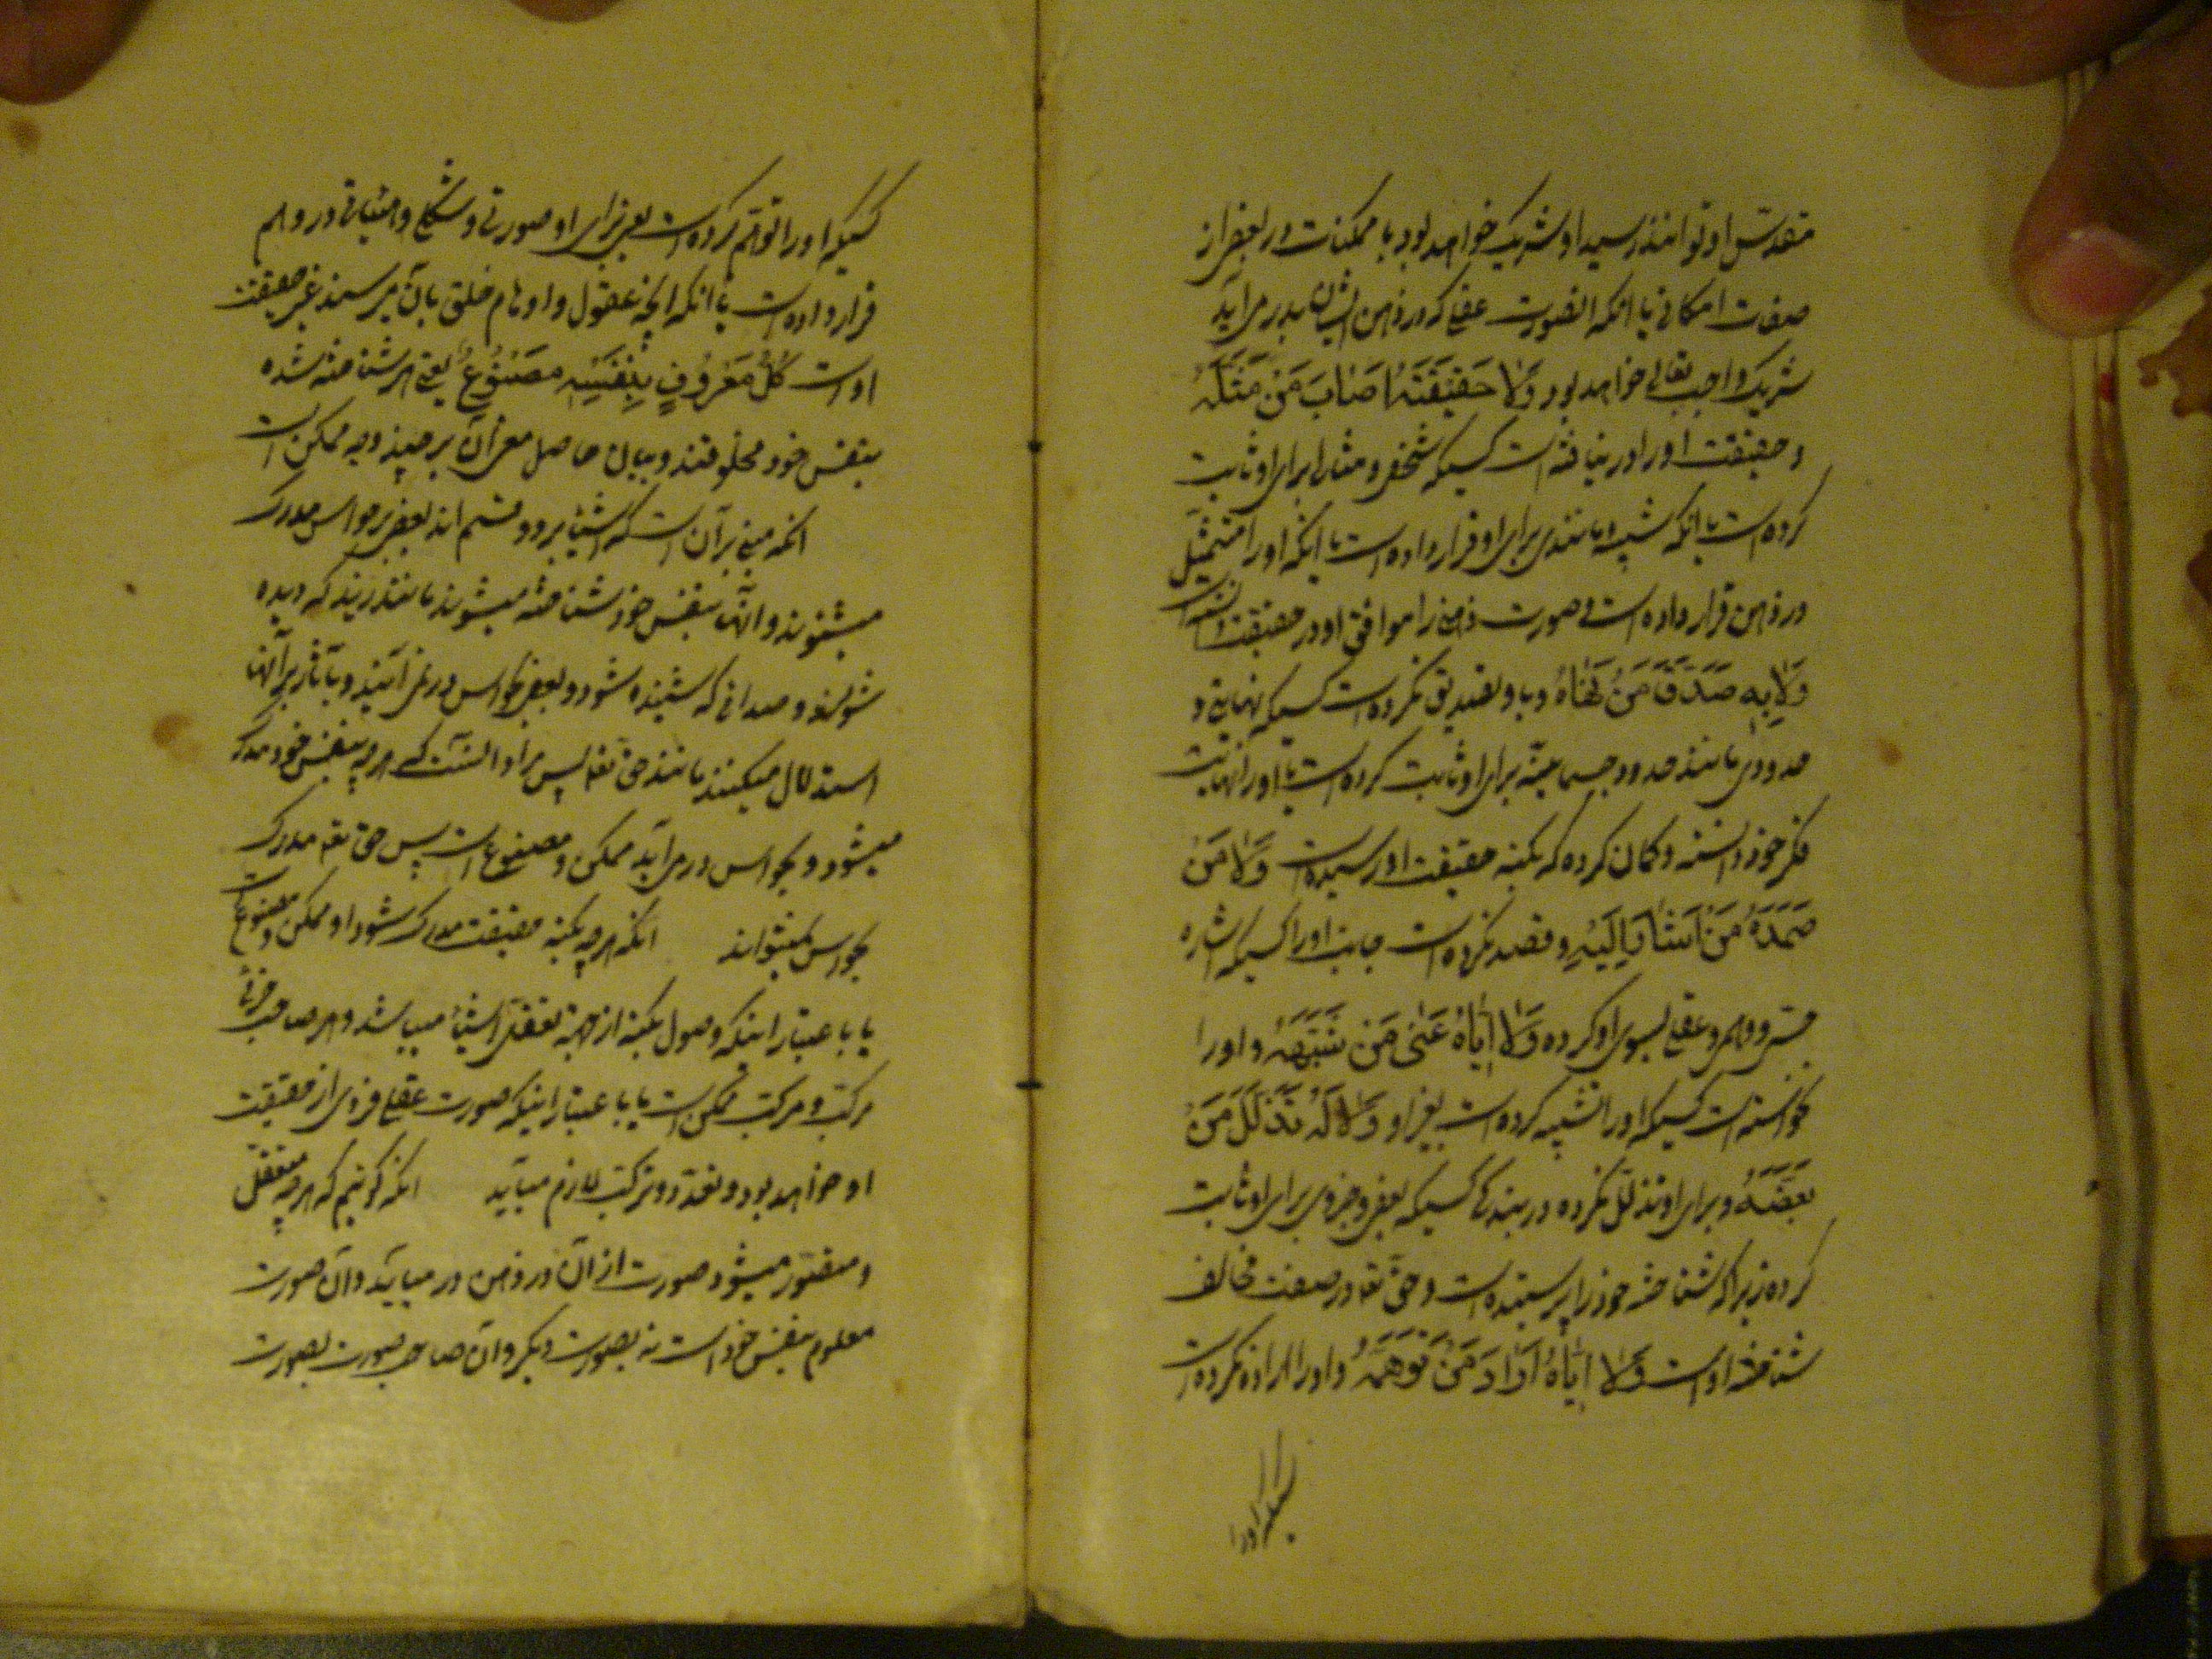 مقدس او توانند رسید او شریک خواهد بود با ممکنات در بعضی از
صفات امکانی یا انکه الصورت عقلی که در ذهن ایشان بدر می آید
شریک واجب تعالی خواهد بود وَلَا حَقِیقَتَهُ اَصَابَ مَنْ مَثَّلَهُ
و حقیقت او را در نیافته است کسیکه شخص و مثالی برای او ثابت
کرده است یا انکه شبیه و مانندی برای او قرار داده است یا انکه او را متمثل
در ذهن قرار داده است و صورت ذهنی را موافق او در حقیقت دانسته است
وَلَا بِهِ صَدَّقَ مَنْ نَهَّاهُ و باو تصدیق نکرده است کسیکه نهایتی و
حدودی مانند حدود جسمانیه برای او ثابت کرده است یا او را نهایت
فکر خود دانسته و گمان کرده که بکنه حقیقت او رسیده است وَلَا
صَمَدَهُ مَنْ اَشَارَ اِلَیْهِ و قصد نکرده است جانب او را کسیکه اشاره
حسی و وهمی و عقلی بسوی او کرده وَلَا اِیَّاهُ عَنٰی مَنْ شَبَّهَهُ و او را
نخواسته است کسیکه او را تشبیه کرده است بغیر او وَلَا لَهُ تَذَلَّلَ مَنْ
بَعَّضَهُ و برای او تذلل نکرده در بندگی کسیکه بعض و جزوی برای او ثابت
کرده زیرا که شناخته خود را پرستیده است و حق تعا در صفت مخالف
شناخته اوست وَلَا اِیَّاهُ اَرَادَ مَنْ تَوَهَّمَهُ و او را اراده نکرده است
کسیکه او را
کسیکه او را توهم کرده است یعنی برای او صورتی و شکلی و هیئاتی در وهم
قرار داده است یا انکه انچه عقول و اوهام خلق بان میرسند غیر حقیقت
اوست کُلُّ مَعْرُوفٍ بِنَفْسِهِ مَصْنُوعٌ یعنی هر شناخته شده
بنفس خود مخلوقند و بیان حاصل معنی آن بر چند وجه ممکن است
انکه مبنی بر آن است که اشیا بر دو قسم اند بعضی بر حواس مدرک
میشوند و آنها بنفس خود شناخته میشوند مانند زید که دیده
شود و صدائی که شنیده شود و بعضی بحواس در نمی آیند و بآثار بر آنها
استدلال میکنند مانند حق تعا پس مراد انست که هر چه بنفس خود مدرک
میشود و بحواس در می آید ممکن و مصنوع است پس حق تعا مدرک
بحواس نمیتواند انکه هر چه بکنه حقیقت مدرک شود او ممکن و مصنوع است
یا باعتبار اینکه وصول بکنه از جهة تعقل اشیا میباشد و هر صاحب جزئی
مرکب و مرکب ممکن است یا باعتبار اینکه صورت عقلی فردی از حقیقت
او خواهد بود و تعدد و ترکب لازم میآید انکه گوئیم که هر چه متعقل
و متصور میشود صورت از آن در ذهن در میاید و آن صورت
معلوم بنفس خود است نه بصورت دیگر و آن صاحب صورت بصورت